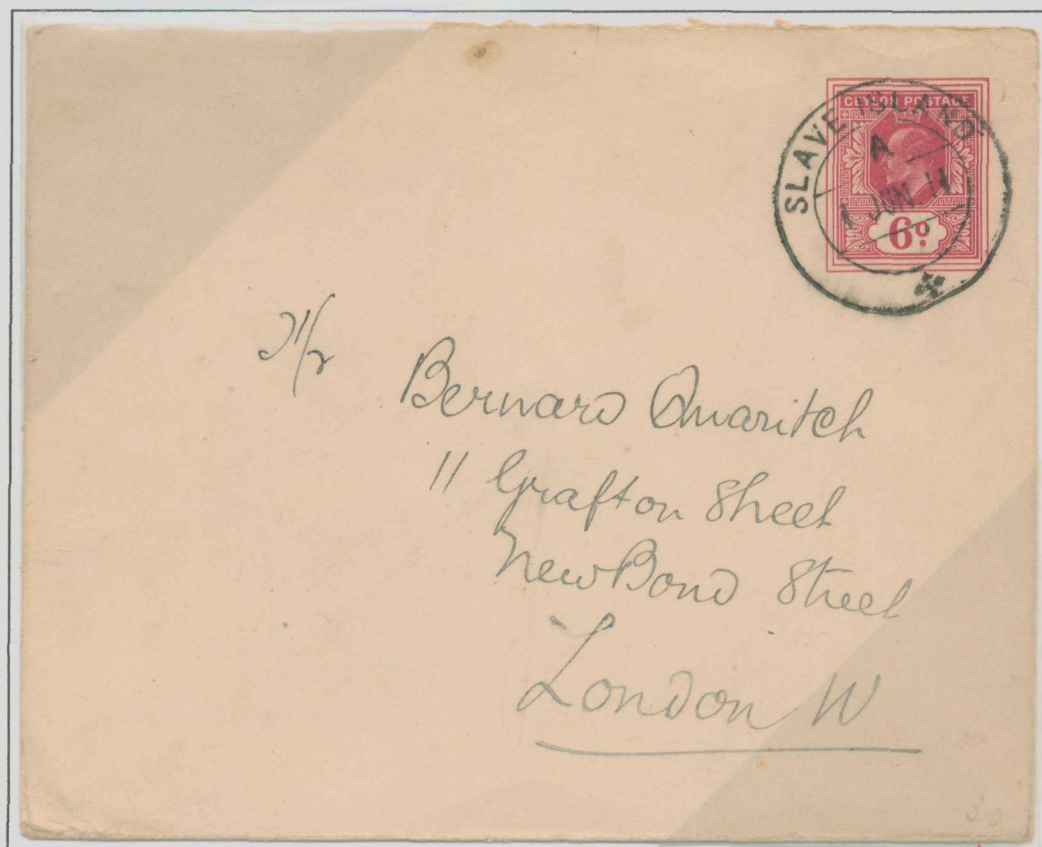 CEYLON POSTAGE
SLAVE ISLAND
A
1 JUN. 11
6c
Mr Bernard Quaritch
11 Grafton Street
New Bond Street
London W